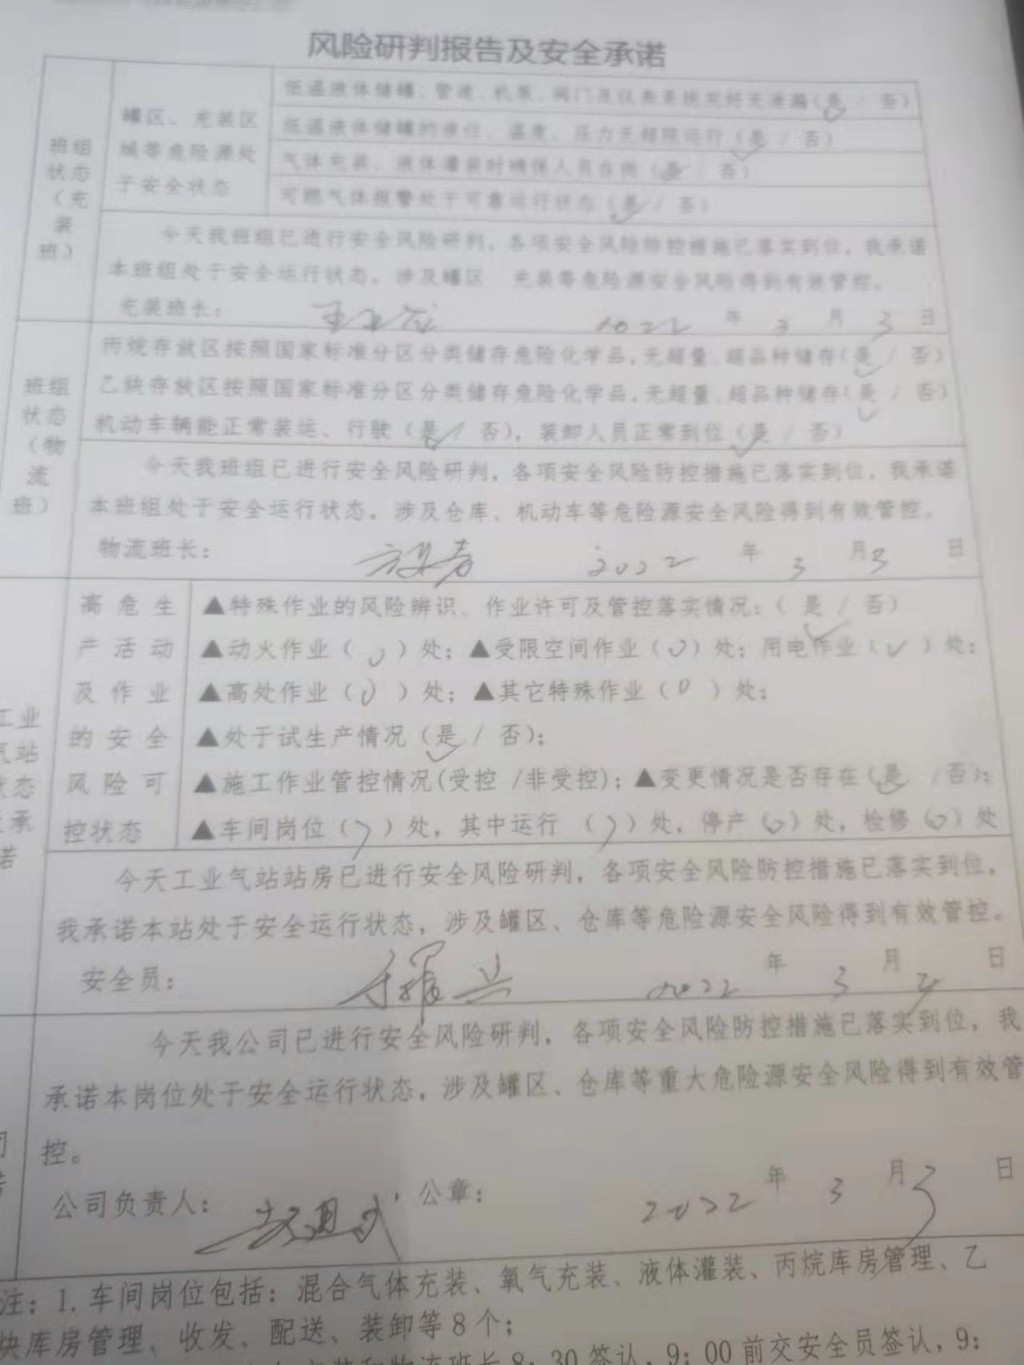 风险研判报告及安全承诺
班组状态（充装班）
罐区、充装区域等危险源处于安全状态
低温液体储罐、管道、机泵、阀门及仪表系统完好无泄漏（是 / 否）
低温液体储罐的液位、温度、压力无超限运行（是 / 否）
气体充装、液体灌装时确保人员在岗（是 / 否）
可燃气体报警处于可靠运行状态（是 / 否）
今天我班组已进行安全风险研判，各项安全风险防控措施已落实到位，我承诺
本班组处于安全运行状态，涉及罐区 充装等危险源安全风险得到有效管控。
充装班长： 2022 年 3 月 3 日
班组状态（物流班）
丙烷存放区按照国家标准分区分类储存危险化学品，无超量、超品种储存（是 / 否）
乙炔存放区按照国家标准分区分类储存危险化学品，无超量、超品种储存（是 / 否）
机动车辆能正常装运、行驶（是 / 否），装卸人员正常到位（是 / 否）
今天我班组已进行安全风险研判，各项安全风险防控措施已落实到位，我承诺
本班组处于安全运行状态，涉及仓库、机动车等危险源安全风险得到有效管控。
物流班长： 2022 年 3 月 3 日
工业
气站
状态
承
诺
高危生产活动及作业的安全风险可控状态
▲特殊作业的风险辨识、作业许可及管控落实情况：（ 是 / 否）
▲动火作业（ 0 ）处；▲受限空间作业（0）处；用电作业（ ）处；
▲高处作业（0 ）处；▲其它特殊作业（0 ）处；
▲处于试生产情况（是 / 否）；
▲施工作业管控情况(受控 /非受控)；▲变更情况是否存在（是 /否）；
▲车间岗位（7）处，其中运行 （7）处，停产（0）处，检修（0）处
今天工业气站站房已进行安全风险研判，各项安全风险防控措施已落实到位，
我承诺本站处于安全运行状态，涉及罐区、仓库等危险源安全风险得到有效管控。
安全员： 2022 年 3 月 日
今天我公司已进行安全风险研判，各项安全风险防控措施已落实到位，我
承诺本岗位处于安全运行状态，涉及罐区、仓库等重大危险源安全风险得到有效管
控。
公司负责人： 公章： 2022 年 3 月 3 日
注：1.车间岗位包括：混合气体充装、氧气充装、液体灌装、丙烷库房管理、乙
炔库房管理、收发、配送、装卸等8个；
充装和物流班长8：30签认，9：00前交安全员签认，9：